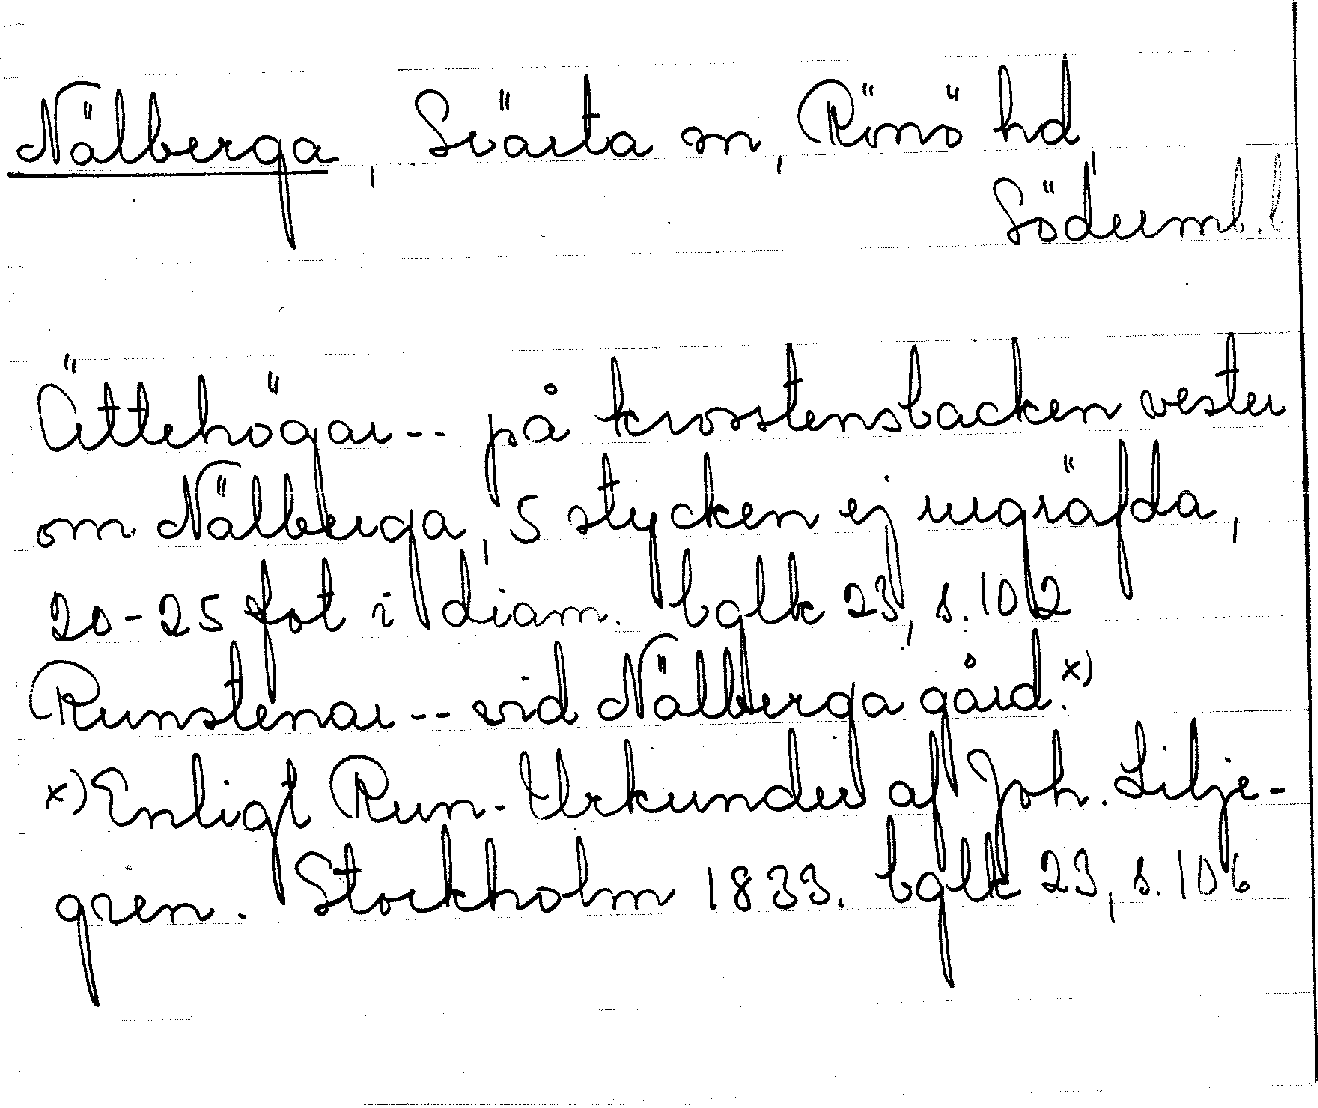 Nälberga, Svärta sn, Rönö hd,
Söderml. l
Ättehögar -- på krosstensbacken vester
om Nälberga, 5 stycken ej urgräfda,
20-25 fot i diam. bglk 23, s. 102
Runstenar -- vid Nälberga gård.x)
x) Enligt Run-Urkunder af Joh. Lilje-
gren. Stockholm 1833. bglk 23, s. 106